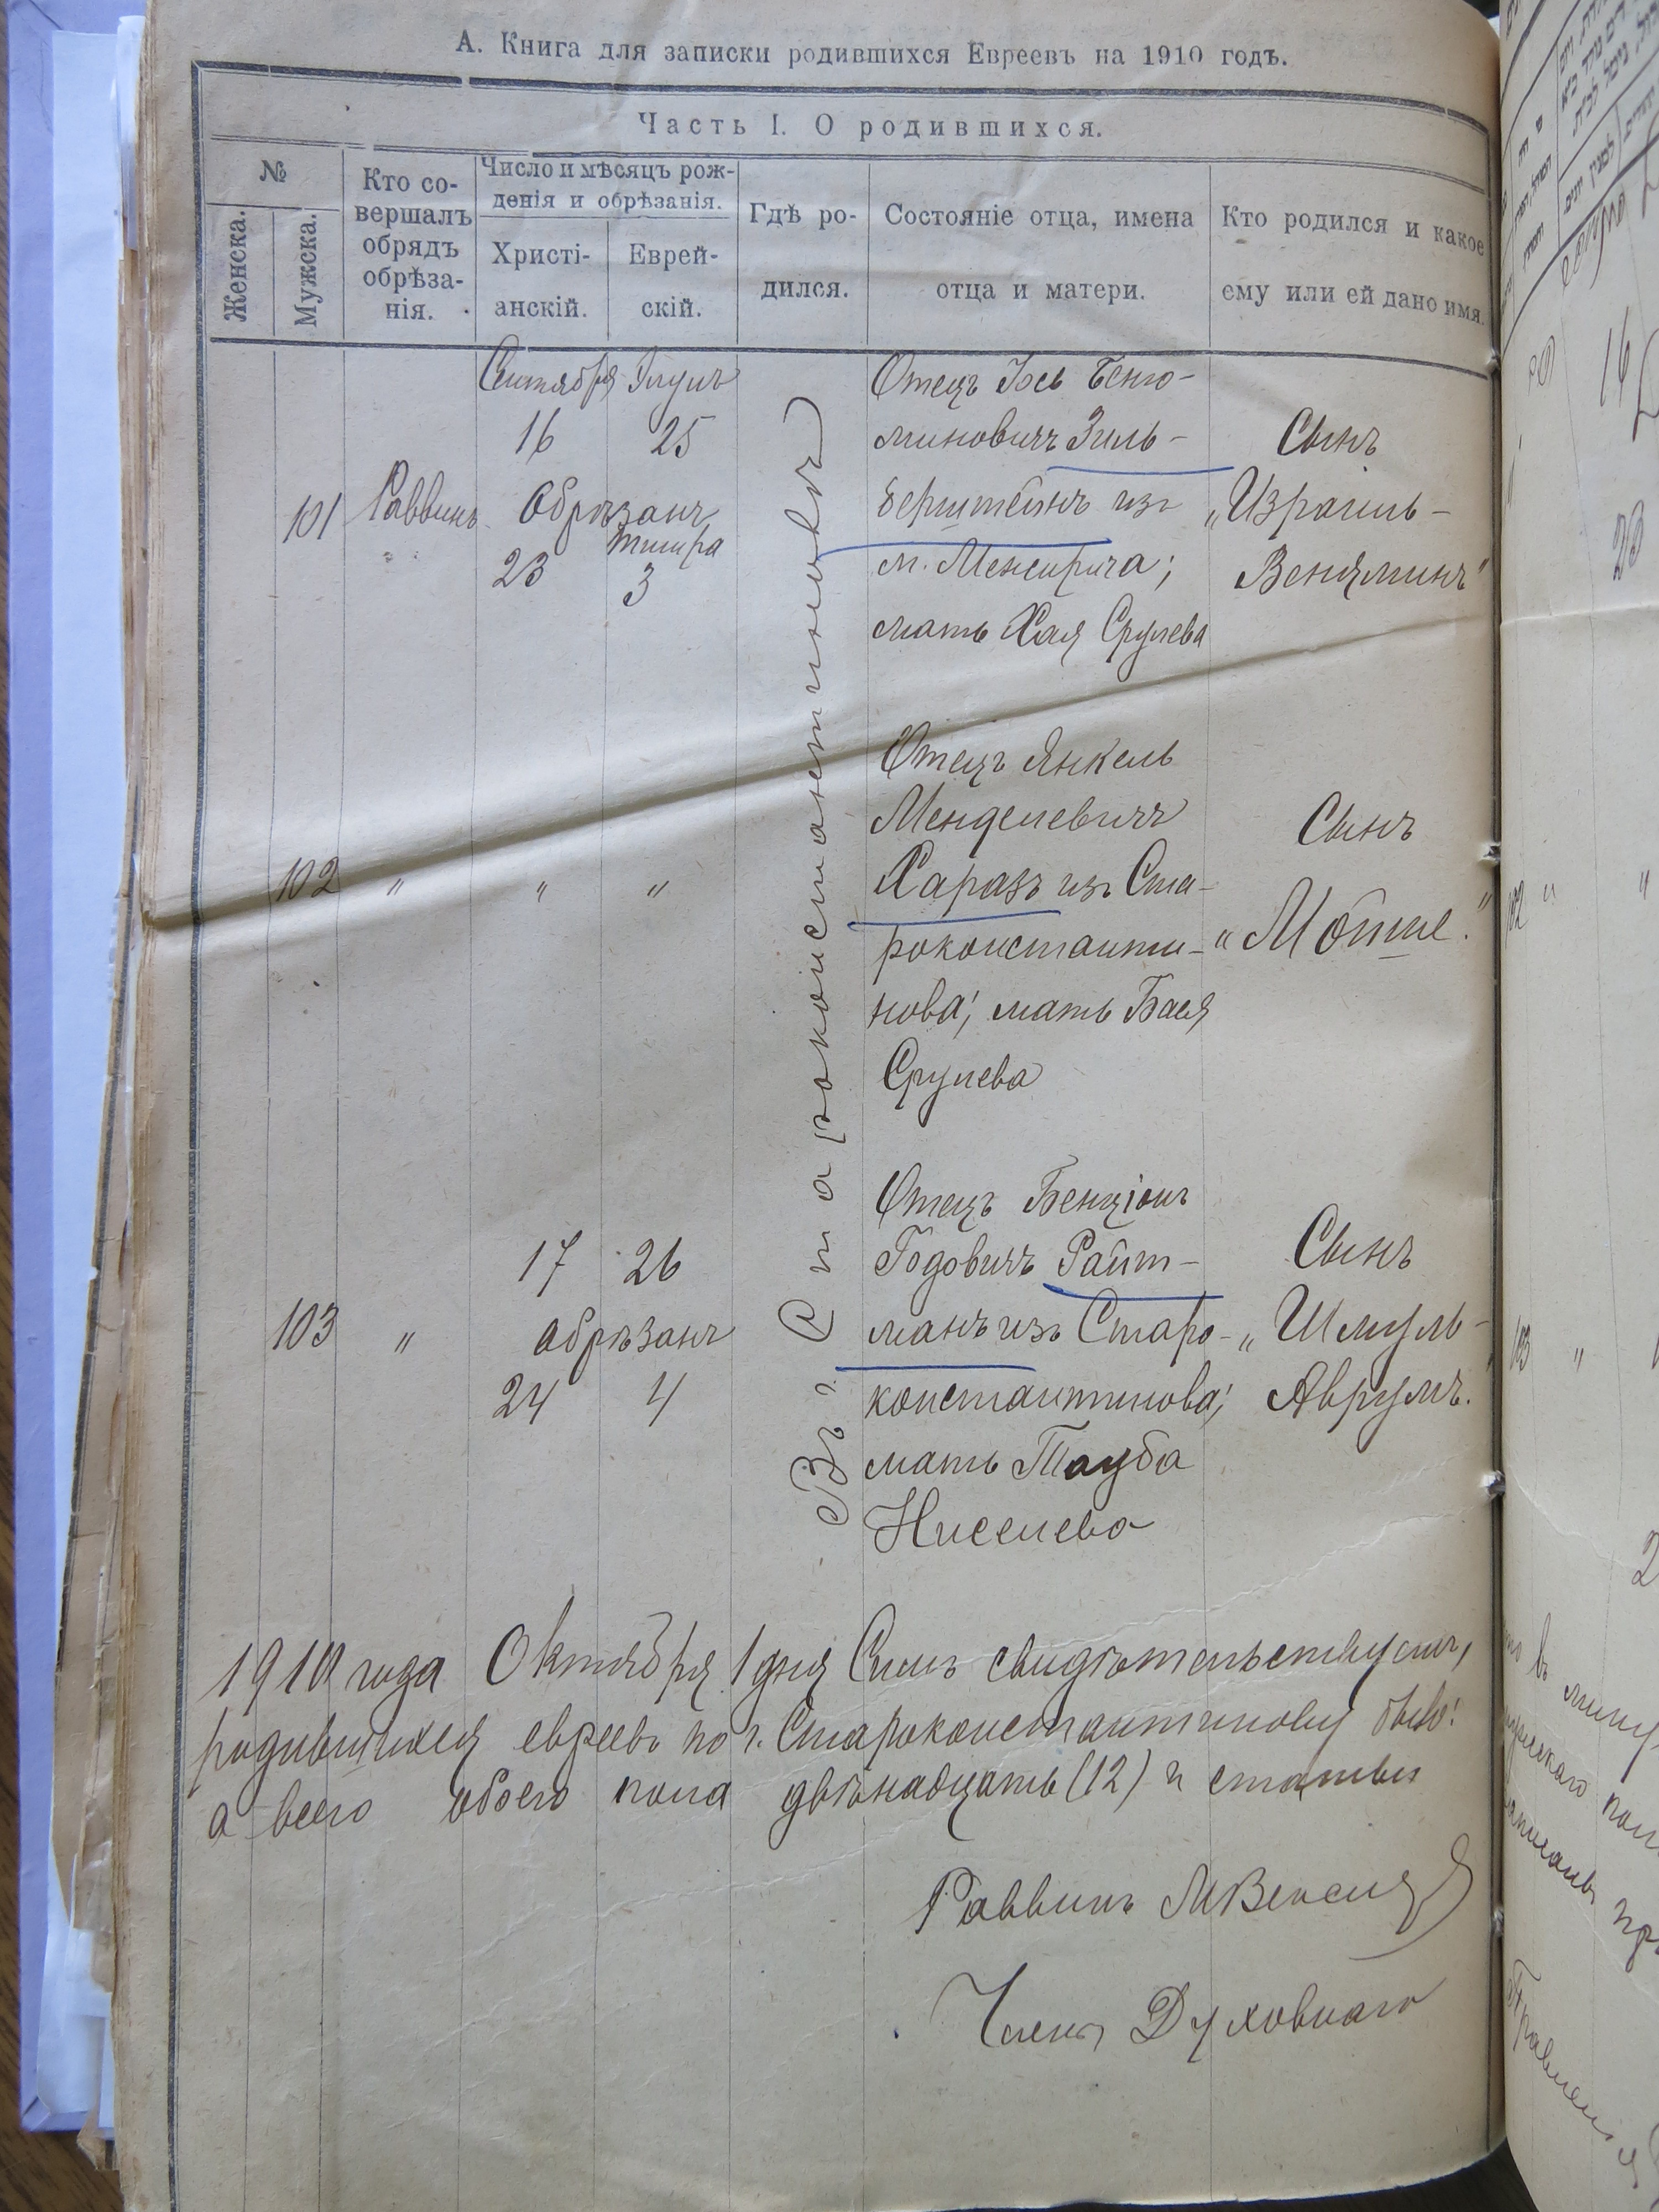 А. Книга для записки родившихся Евреевъ на 1910 годъ.
Часть I. О родившихся.
№
Женска.
Мужска.
Кто со-
вершалъ
обрядъ
обрѣза-
нія.
Число и мѣсяцъ рож-
денія и обрѣзанія.
Христі-
анскій.
Еврей-
скій.
Гдѣ ро-
дился.
Состояніе отца, имена
отца и матери.
Кто родился и какое
ему или ей дано имя.
Сентября Элулъ
16 25
101 Раввинъ Обрѣзанъ
Тишра
23 3
Въ г. Староконстантиновѣ
Отецъ Іось Беню-
миновичъ Зиль-
берштейнъ изъ
м. Межирича;
мать Хая Срулева
Сынъ
„Израиль-
Веніяминъ"
102 " " "
Отецъ Янкель
Менделевичъ
Харазъ изъ Ста-
роконстанти-
нова; мать Бася
Срулева
Сынъ
„Мотие."
17 26
103 " обрѣзанъ
24 4
Отецъ Бенціонъ
Годовичъ Райт-
манъ изъ Старо-
константинова;
мать Тауба
Киселева
Сынъ
„Шмуль-
Аврумъ."
1910 года Октября 1 дня Симъ свидѣтельствуемъ,
родившихся евреевъ по г. Староконстантинову было:
а всего обоего пола двѣнадцать (12) и статьи
Раввинъ
Члены Духовнаго
102 " "
103 "
16
23